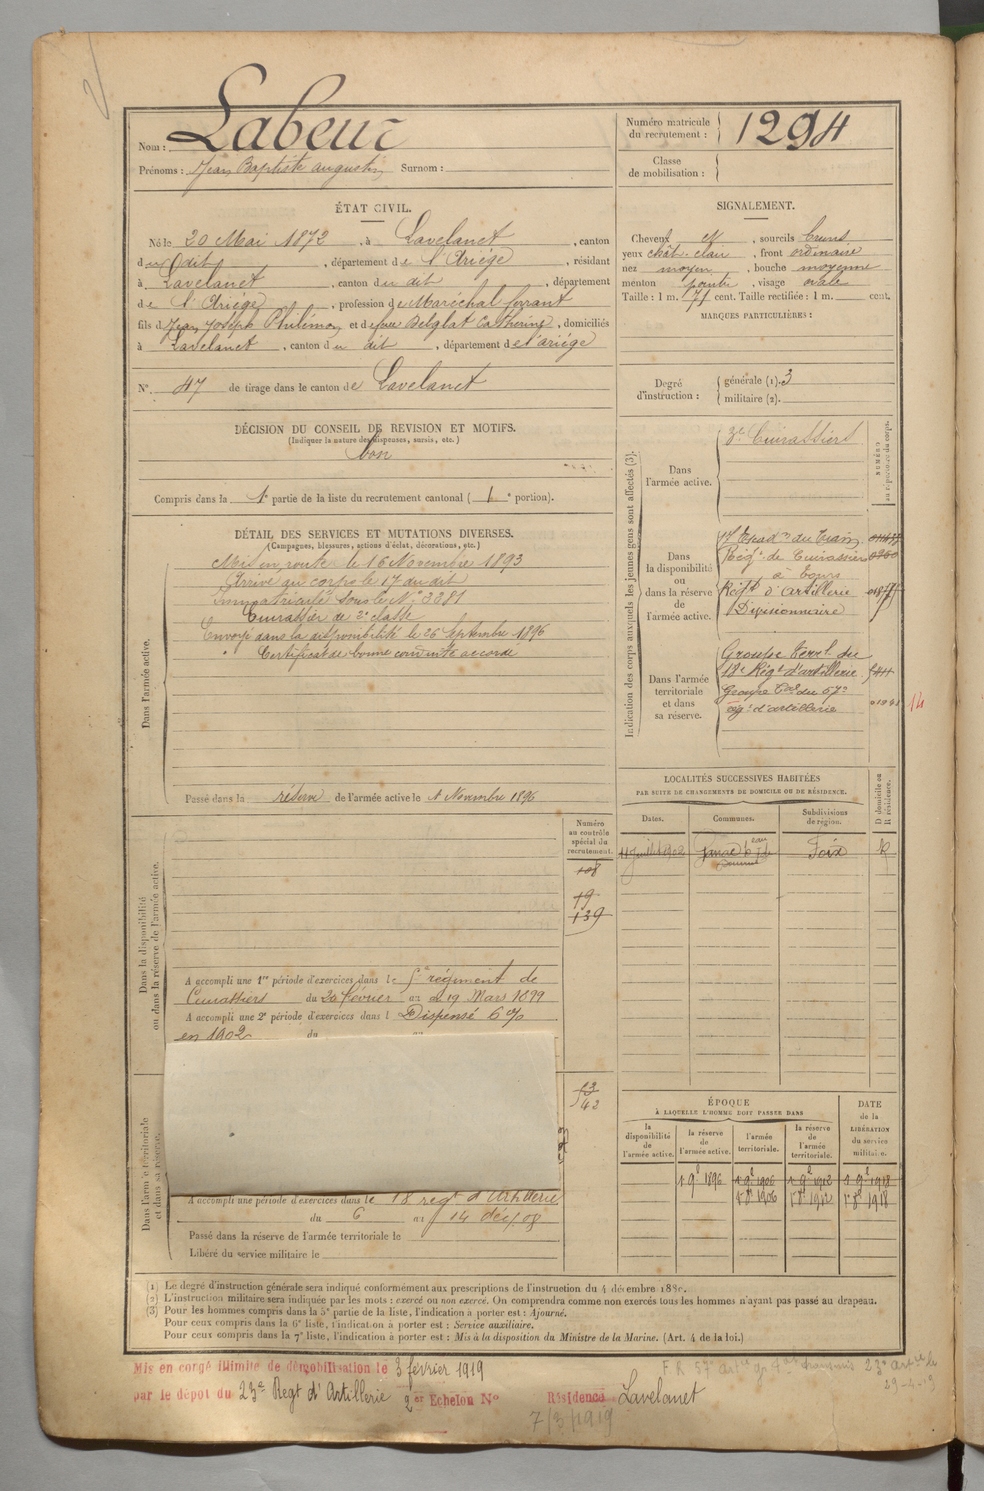 Nom : Labeur
Prénoms : Jean Baptiste Augustin Surnom :
Numéro matricule du recrutement : 1294
Classe de mobilisation :
ÉTAT CIVIL.
Né le 20 Mai 1872, à Lavelanet, canton
du dit, département de l'Ariége, résidant
à Lavelanet, canton du dit, département
de l'Ariége, profession de Maréchal ferrant
fils de Jean Joseph Philémon et de feue Delglat Catherine, domiciliés
à Lavelanet, canton du dit, département de l'ariége
N° 47 de tirage dans le canton de Lavelanet
SIGNALEMENT.
Cheveux et, sourcils bruns
yeux chât. clair, front ordinaire
nez moyen, bouche moyenne
menton pointu, visage ovale
Taille : 1 m. 71 cent. Taille rectifiée : 1 m. cent.
MARQUES PARTICULIÈRES :
Degré d'instruction : générale (1). 3
militaire (2).
DÉCISION DU CONSEIL DE REVISION ET MOTIFS.
(Indiquer la nature des dispenses, sursis, etc.)
bon
Compris dans la 1e partie de la liste du recrutement cantonal (1e portion).
DÉTAIL DES SERVICES ET MUTATIONS DIVERSES.
(Campagnes, blessures, actions d'éclat, décorations, etc.)
Dans l'armée active.
Mis en route le 16 Novembre 1893
Arrivé au corps le 17 du dit
Immatriculé sous le N° 3281
Cuirassier de 2e classe
Envoyé dans la disponibilité le 26 Septembre 1896
Certificat de bonne conduite accordé
Passé dans la réserve de l'armée active le 1 Novembre 1896
Indication des corps auxquels les jeunes gens sont affectés (3).
NUMÉRO au répertoire du corps.
Dans l'armée active.
3e Cuirassiers
Dans la disponibilité ou dans la réserve de l'armée active.
17 Escadon du Train
Régt de Cuirassiers
à Tours
Régt d'artillerie
Divisionnaire
Dans l'armée territoriale et dans sa réserve.
Groupe terrl du
18e Régt d'artillerie
Groupe tal du 57e
rég. d'artillerie
LOCALITÉS SUCCESSIVES HABITÉES
PAR SUITE DE CHANGEMENTS DE DOMICILE OU DE RÉSIDENCE.
D domicile ou R résidence.
Dates. Communes. Subdivisions de région.
11 Juillet 1902 Foix R
Numéro au contrôle spécial du recrutement.
108
19
139
Dans la disponibilité ou dans la réserve de l'armée active.
A accompli une 1re période d'exercices dans le 5e régiment de
Cuirassiers du 20 février au 19 Mars 1899
A accompli une 2e période d'exercices dans l Dispensé 6%
en 1902 du au
Dans l'armée territoriale et dans sa réserve.
A accompli une période d'exercices dans le 18 regt d'Artillerie
du 6 au 14 déc. 08
Passé dans la réserve de l'armée territoriale le
Libéré du service militaire le
ÉPOQUE
À LAQUELLE L'HOMME DOIT PASSER DANS
DATE de la LIBÉRATION du service militaire.
la disponibilité de l'armée active. la réserve de l'armée active. l'armée territoriale. la réserve de l'armée territoriale.
1 9e 1896 1 9e 1906 1 9e 1912 1 9e 1918
1r 8e 1906 1r 8e 1912 1r 8e 1918
(1) Le degré d'instruction générale sera indiqué conformément aux prescriptions de l'instruction du 4 décembre 1889.
(2) L'instruction militaire sera indiquée par les mots : exercé ou non exercé. On comprendra comme non exercés tous les hommes n'ayant pas passé au drapeau.
(3) Pour les hommes compris dans la 5e partie de la liste, l'indication à porter est : Ajourné.
Pour ceux compris dans la 6e liste, l'indication à porter est : Service auxiliaire.
Pour ceux compris dans la 7e liste, l'indication à porter est : Mis à la disposition du Ministre de la Marine. (Art. 4 de la loi.)
Mis en congé illimité de démobilisation le 3 février 1919
par le dépôt du 23e Regt d'Artillerie 2er Echelon N° Résidence Lavelanet
7/3/1919
29-4-19